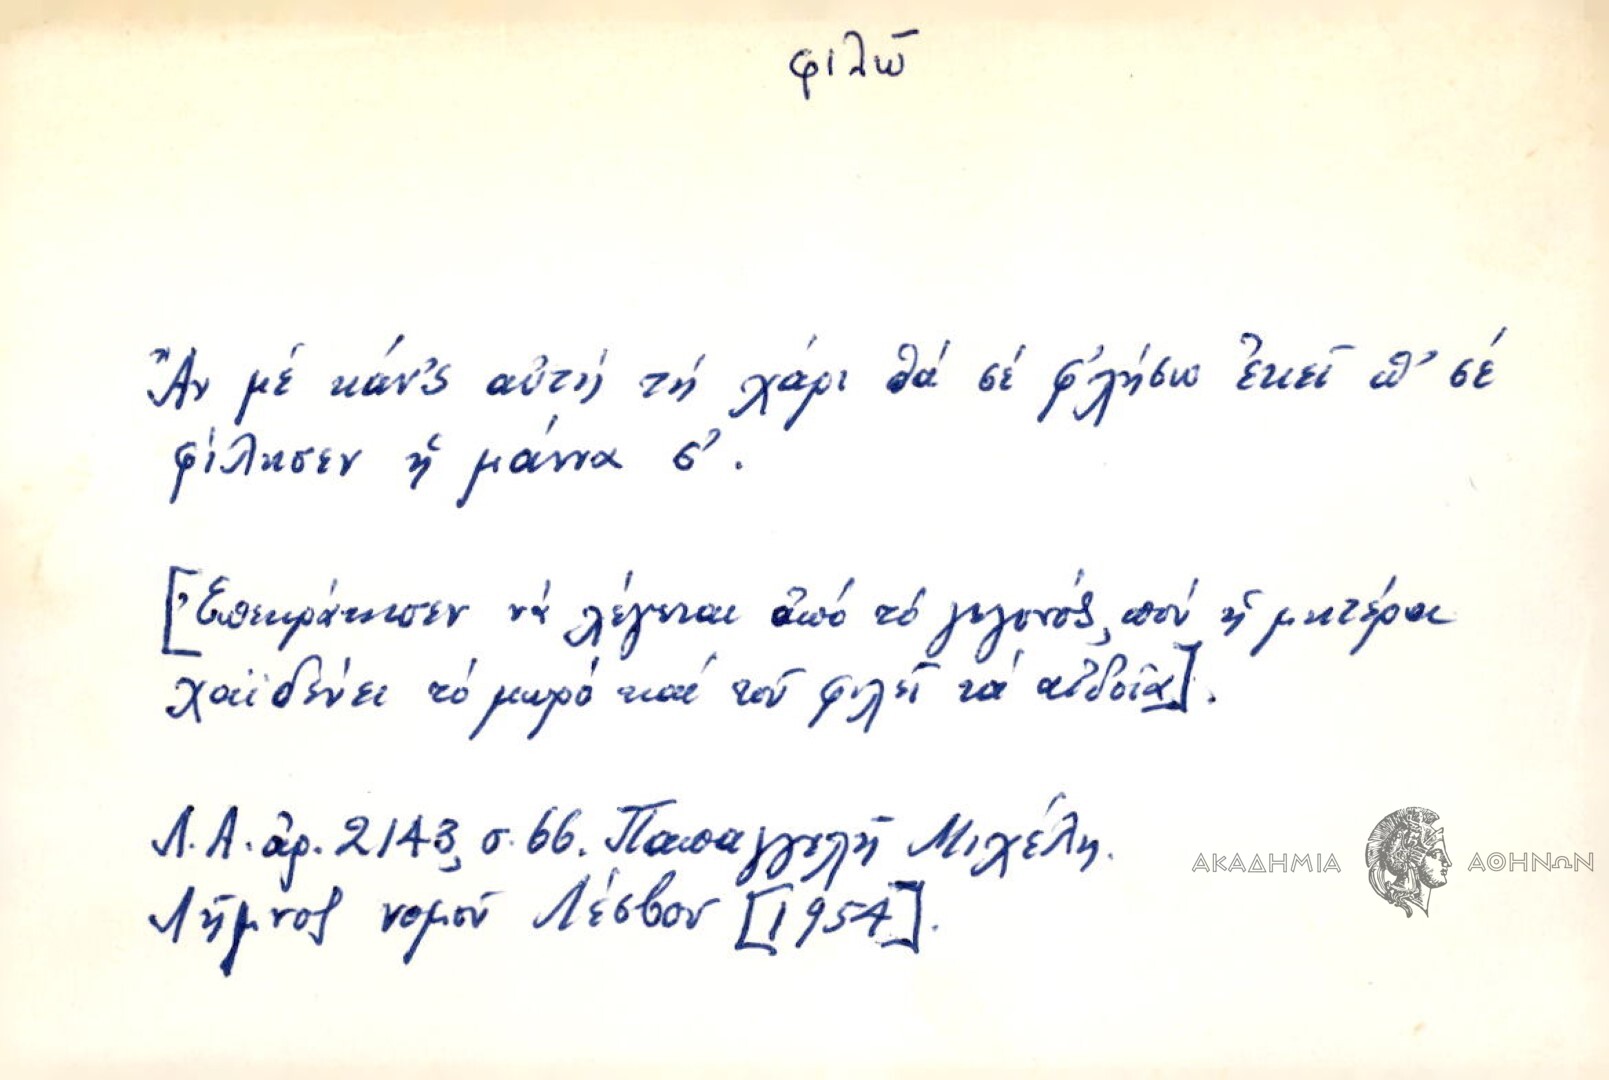 φιλῶ
Ἄν μέ κάν'ς αὐτή τή χάρι θά σέ φ'λήσω ἐκεῖ π' σέ
φίλησεν ἡ μάννα σ'.
[Ἐπεκράτησεν νά λέγεται ἀπό τό γεγονός, πού ἡ μητέρα
χαϊδεύει τό μωρό καί τοῦ φιλεῖ τά αἰδοῖα].
Λ.Α. ἀρ. 2143, σ. 66. Παπαγγελῆ Μιχέλη.
Λῆμνος νομοῦ Λέσβου [1954].
ΑΚΑΔΗΜΙΑ ΑΘΗΝΩΝ